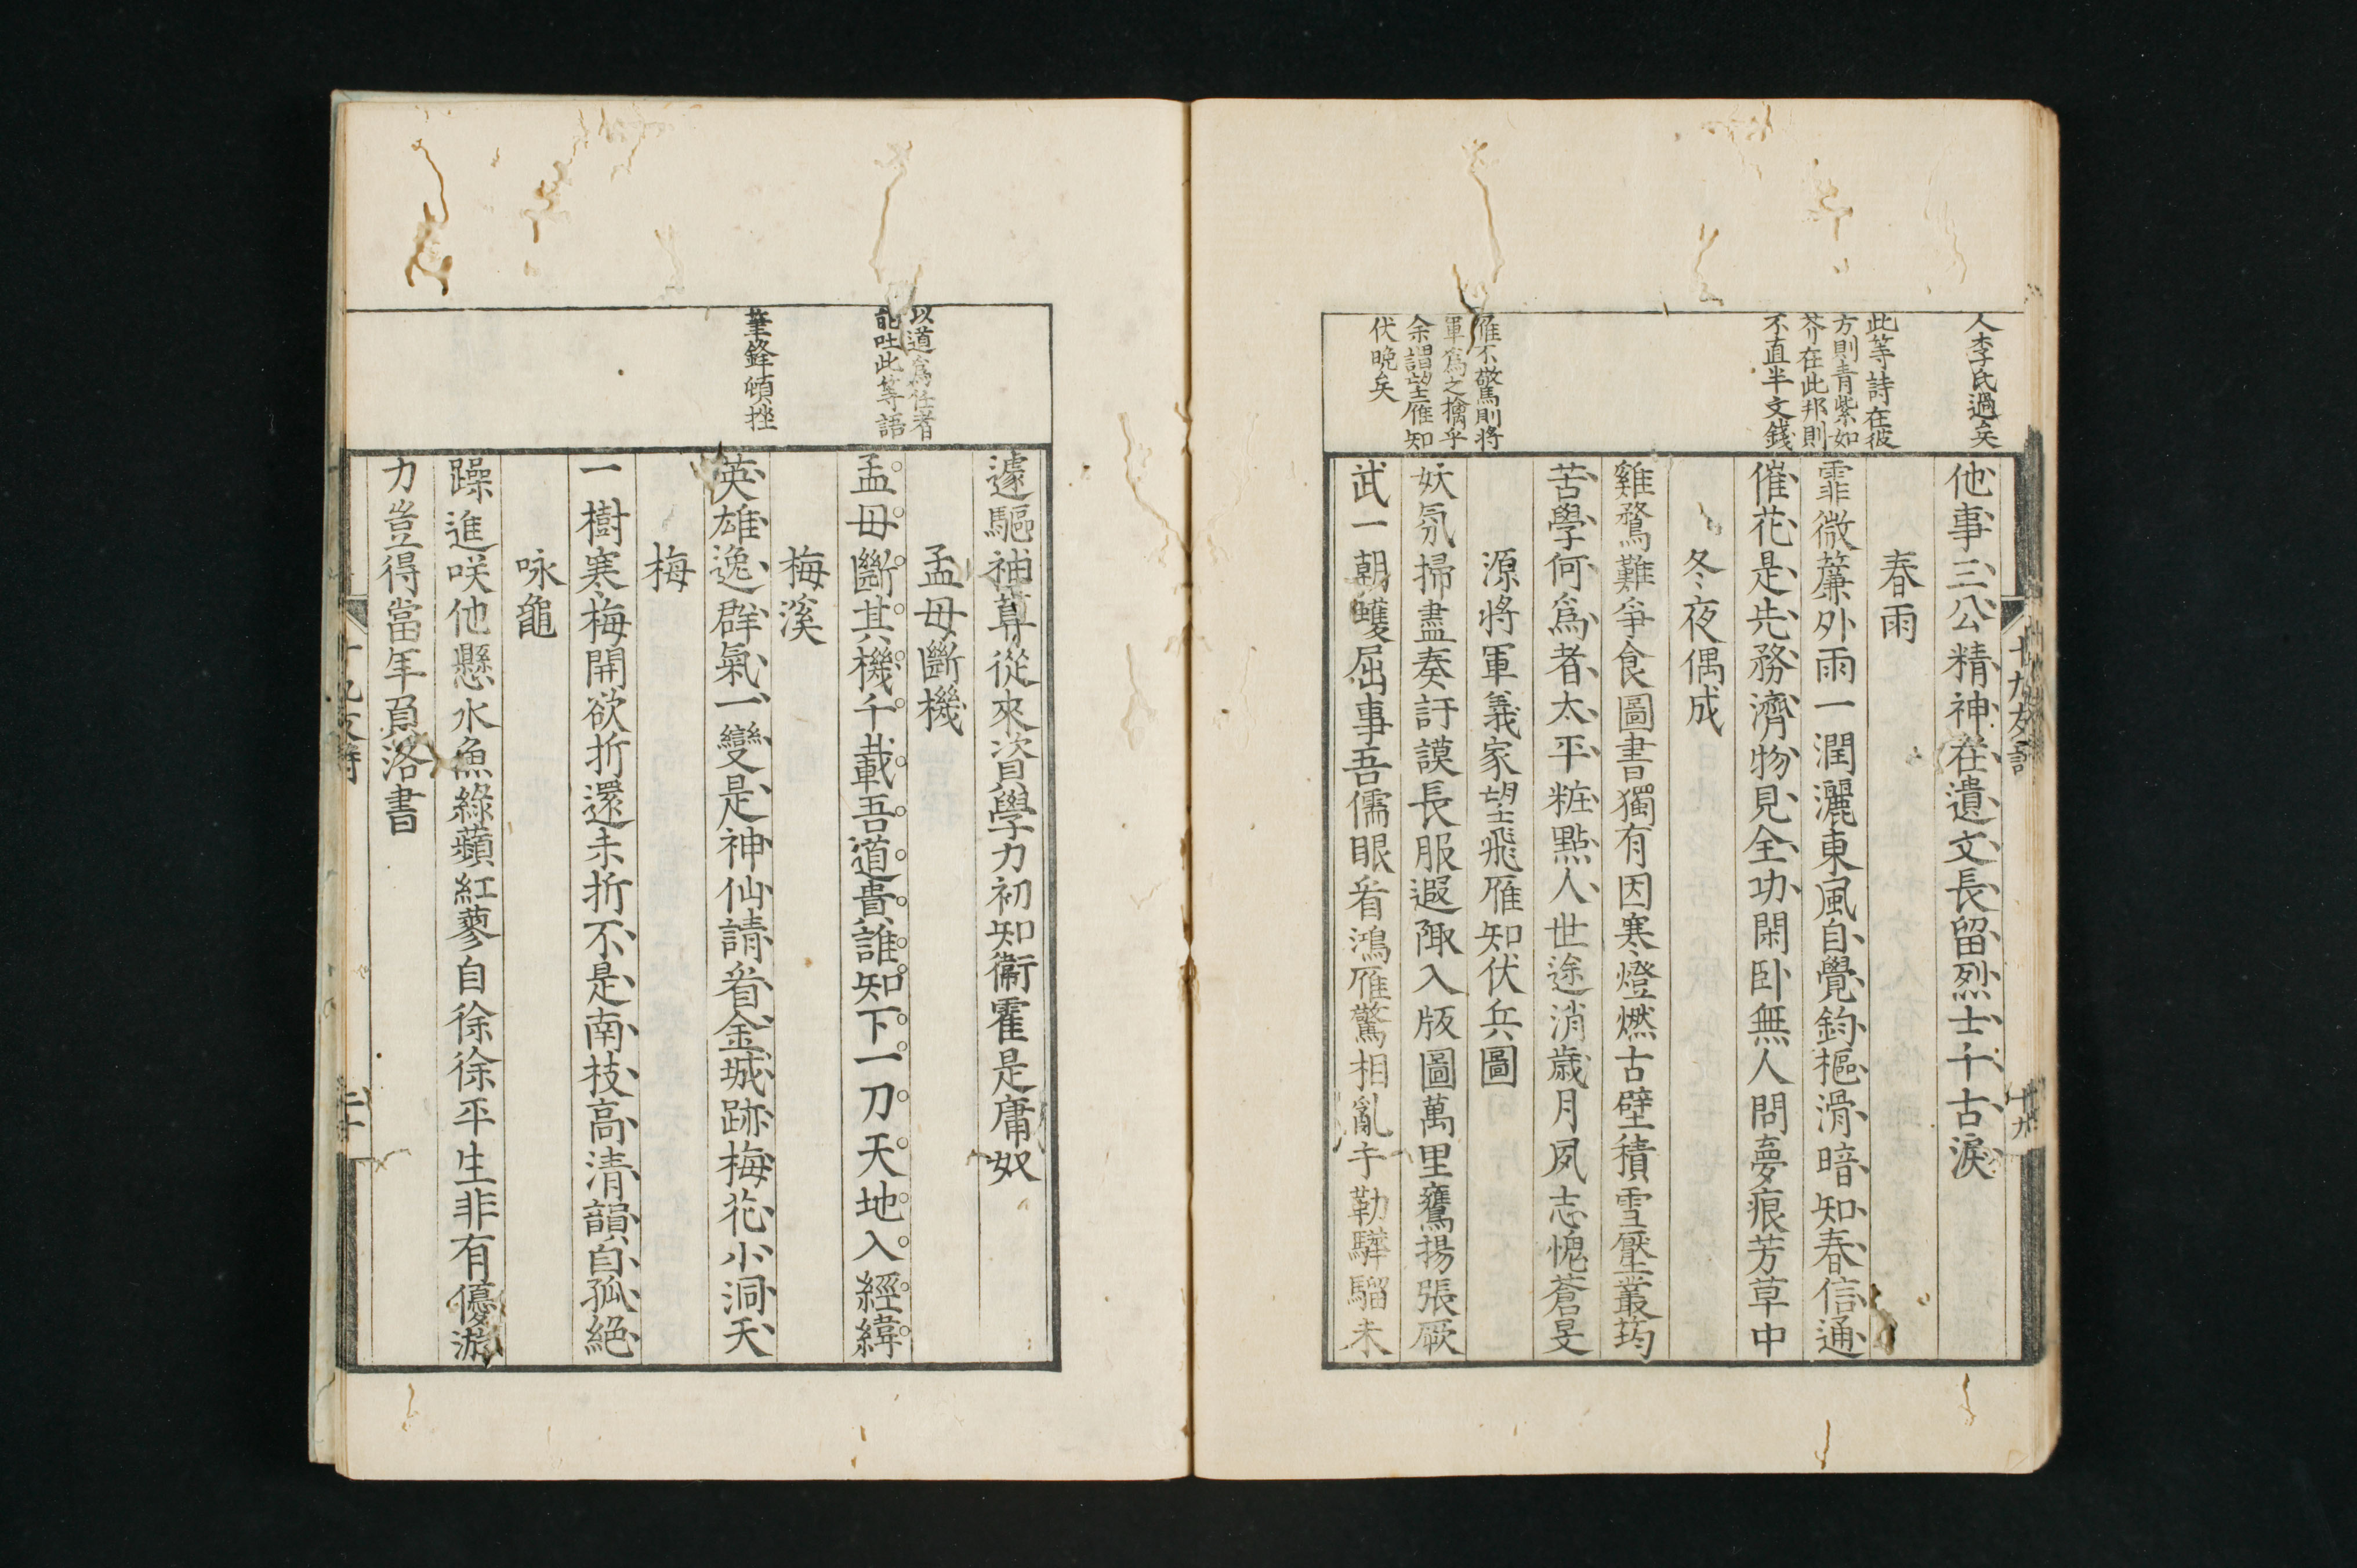 人李氏過矣
此等詩在彼
方則青紫如
芥在此邦則
不直半文錢
雁不驚則將
軍爲之擒乎
余謂望雁知
伏晚矣
他事三公精神在遺文長留烈士千古淚
春雨
霏微簾外雨一潤灑東風自覺鈞樞滑暗知春信通
催花是先務濟物見全功閑臥無人問夢痕芳草中
冬夜偶成
雞鶩難爭食圖書獨有因寒燈燃古壁積雪壓叢筠
苦學何爲者太平粧點人世途消歲月夙志愧蒼旻
源將軍義家望飛雁知伏兵圖
妖氛掃盡奏訏謨長服遐陬入版圖萬里鷹揚張厥
武一朝蠖屈事吾儒眼看鴻雁驚相亂手勒驊騮未
十九友詩
十九
以道爲任者
能吐此等語
筆鋒頓挫
遽驅神算從來資學力初知衞霍是庸奴
孟母斷機
孟母斷其機千載吾道貴誰知下一刀天地入經緯
梅溪
英雄逸群氣一變是神仙請看金城跡梅花小洞天
梅
一樹寒梅開欲折還未折不是南枝高清韻自孤絕
咏龜
躁進咲他懸水魚綠蘋紅蓼自徐徐平生非有優游
力豈得當年負洛書
十九友詩
二十